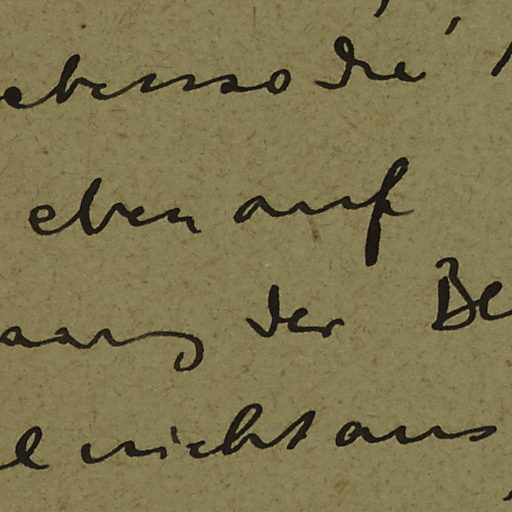 ebenso die
eben auf
der Be
nicht aus